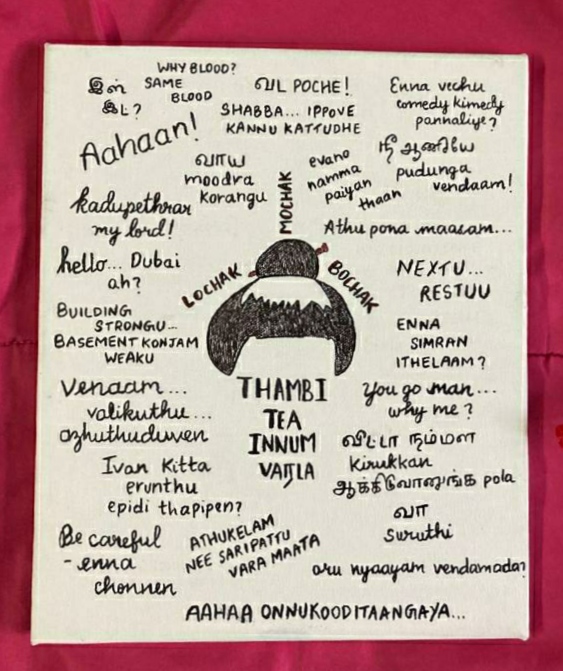 WHY BLOOD?
SAME
BLOOD
இன்
இட்?
வட POCHE!
Enna vechu
comedy kimedy
pannaliye?
Aahaan!
SHABBA... IPPOVE
KANNU KATTUDHE
வாய
moodra
korangu
MOCHAK
evano
namma
paiyan
thaan
நீ ஆணியே
pudunga
vendaam!
kadupethrar
my lord!
Athu pona maasam...
hello... Dubai
ah?
LOCHAK
BOCHAK
NEXTU...
RESTUU
BUILDING
STRONGU...
BASEMENT KONJAM
WEAKU
ENNA
SIMRAN
ITHELAAM?
Venaam...
valikuthu...
azhuthuduven
THAMBI
TEA
INNUM
VARLA
You go man...
why me?
விட்டா நம்மள
kirukkan
ஆக்கிடுவானுங்க pola
Ivan Kitta
erunthu
epidi thapipen?
வா
suruthi
Be careful
-enna
chonnen
ATHUKELAM
NEE SARIPATTU
VARA MAATA
oru nyaayam vendamada?
AAHAA ONNUKOODITAANGAYA...